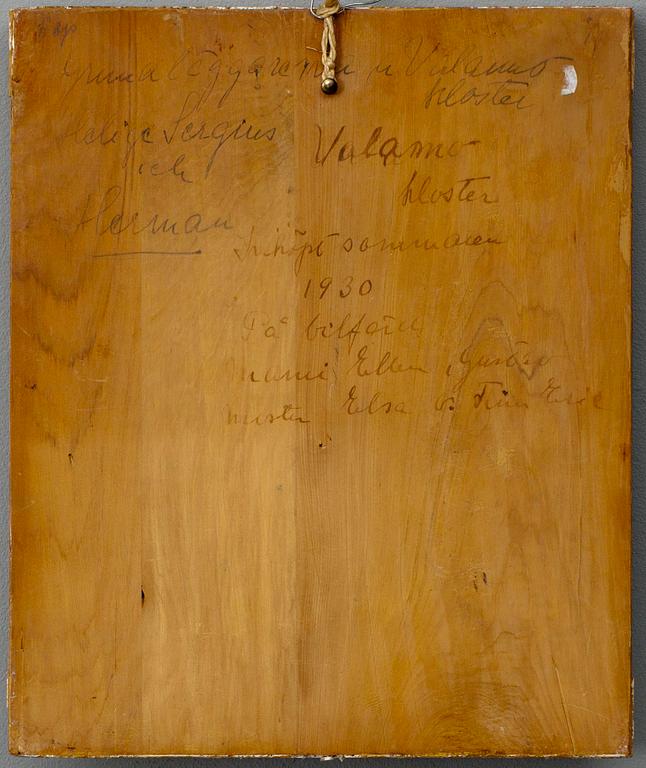 grundläggarena u Valamo
kloster
Helige Sergius
och
Herman
Valamo
kloster
Inköpt sommaren
1930
På bilfärd
Ellen, Gustav
moster Elsa o.